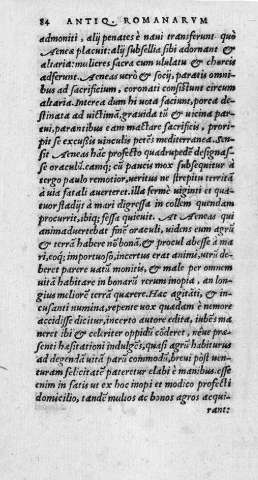 84 ANTIQ. ROMANARVM
admoniti, alij penates è naui transferunt quò
Aeneæ placuit: alij subsellia sibi adornant &
altaria: mulieres sacra cum ululatu & choreis
adferunt. Aeneas uerò & socij, paratis omni-
bus ad sacrificium, coronati consistunt circum
altaria. Interea dum hi uota faciunt, porca de-
stinata ad uictimã, grauida tũ & uicina par-
tui, parantibus eam mactare sacrificis, prori-
pit se excussis uinculis petẽs mediterranea. Sen-
sit Aeneas hãc profecto quadrupedẽ designas-
se oraculũ. eamq; cũ paucis mox subsequitur à
tergo paulo remotior, ueritus ne strepitu territa
à uia fatali auerteret. illa fermè uiginti et qua-
tuor stadijs à mari digressa in collem quendam
procurrit, ibiq; fessa quieuit. At Aeneas qui
animaduertebat finẽ oraculi, uidens eum agrũ
& terrã habere nõ bonã, & procul abesse à ma
ri, eoq; importuoso, incertus erat animi, utrũ de-
beret parere uatũ monitis, & male per omnem
uitã habitare in bonarũ rerum inopia, an lon
gius meliorẽ terrã quærere. Hæc agitãti, & in-
cusanti numina, repente uox quædam è nemore
accidisse dicitur, incerto autore edita, iubẽs ma
neret ibi & celeriter oppidũ cõderet, néue præ-
senti hæsitationi indulgẽs, quasi agrũ habiturus
ad degendã uitã parũ commodũ, breui pòst uen-
turam felicitatẽ pateretur elabi è manibus. esse
enim in fatis ut ex hoc inopi et modico profecti
domicilio, tandẽ multos ac bonos agros acqui-
rant: